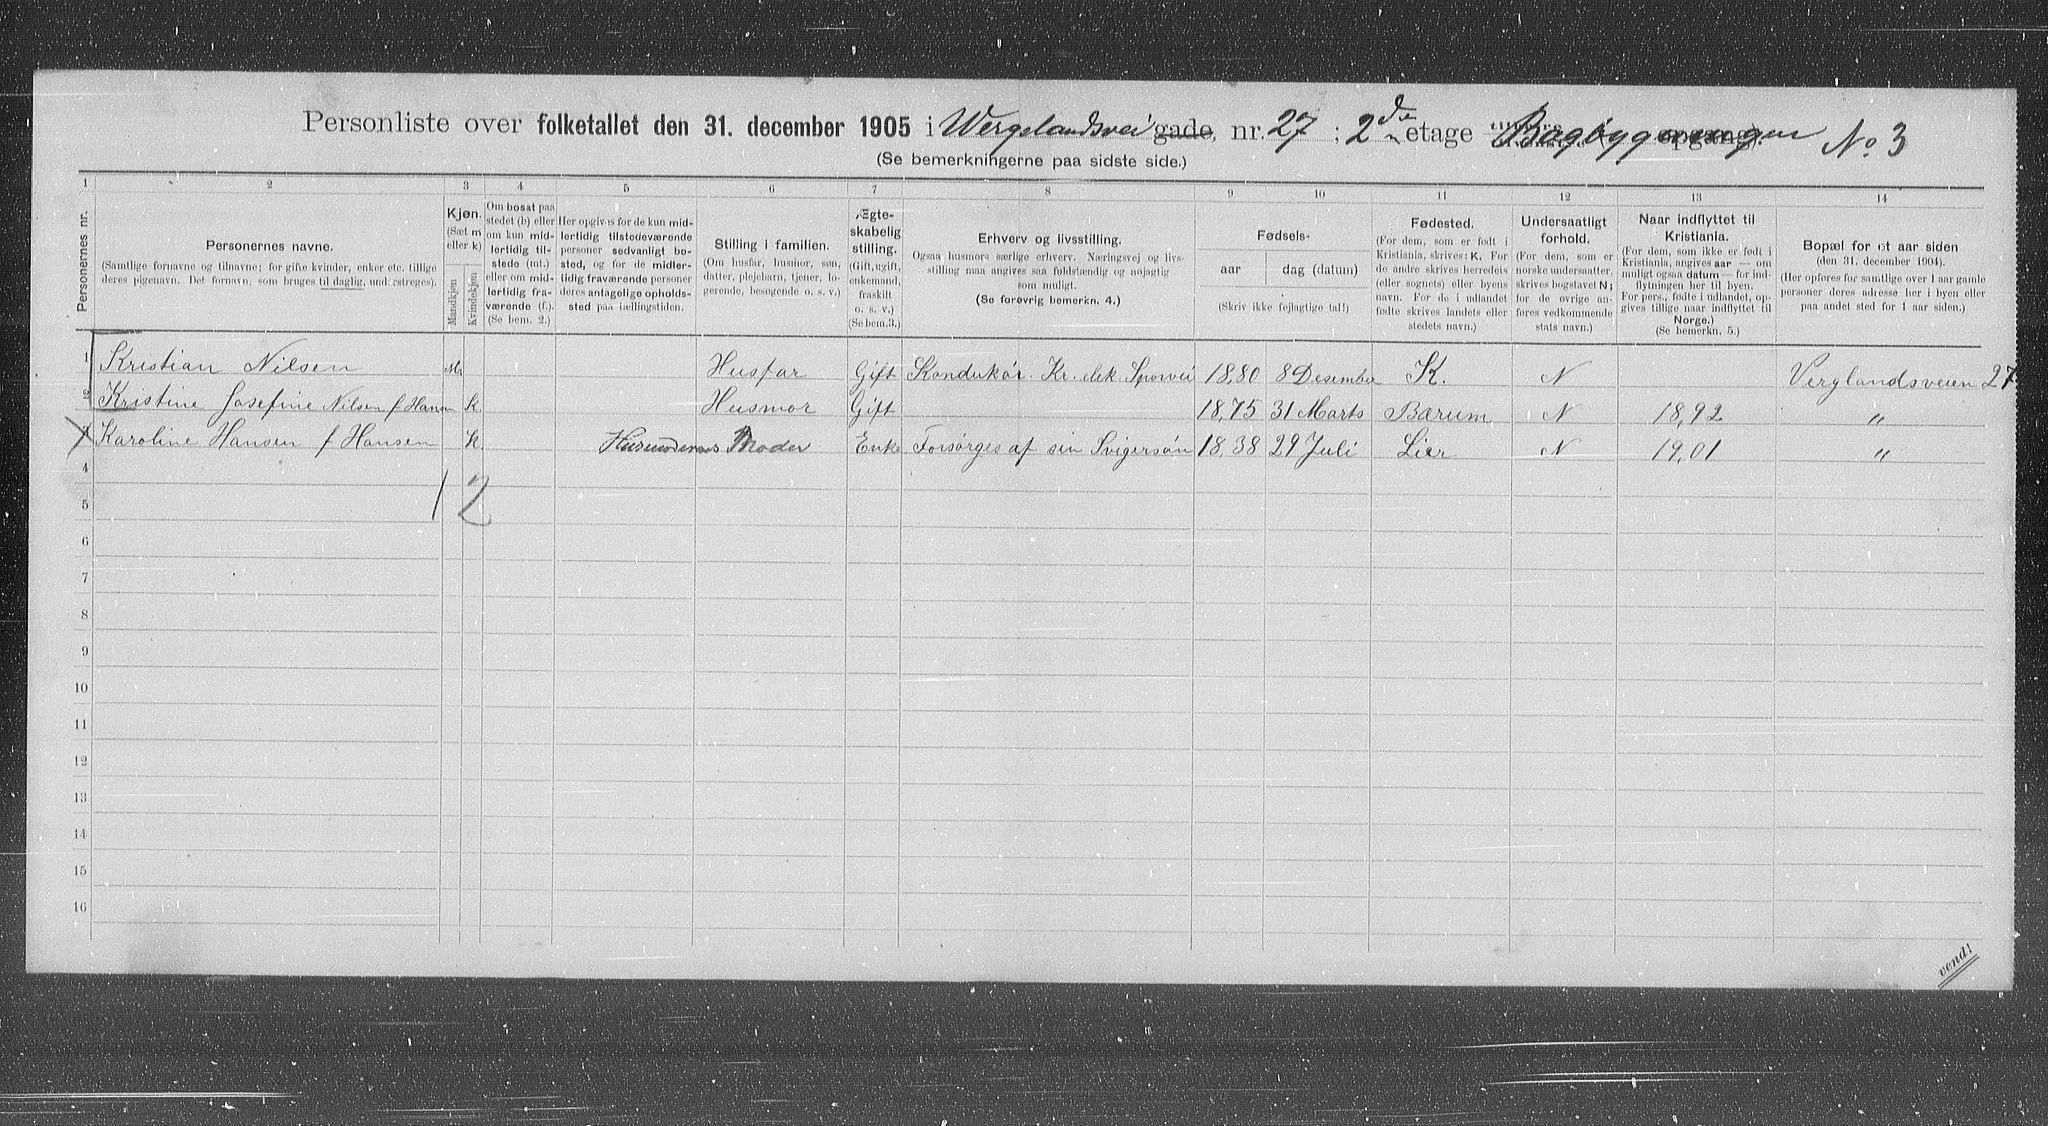 Personliste over folketallet den 31. december 1905 i Wergelandsvei gade, nr. 27 ; 2den etage Bagbyggningen No. 3
(Se bemerkningerne paa sidste side.)
1 2 3 4 5 6 7 8 9 10 11 12 13 14
Personernes nr.
Personernes navne.
(Samtlige fornavne og tilnavne; for gifte kvinder, enker etc. tillige
deres pigenavn. Det fornavn, som bruges til daglig, understreges).
Kjøn.
(Sæt m
eller k)
Mandkjøn
Kvindekjøn
Om bosat paa
stedet (b) eller
om kun mid-
lertidig til-
stede (mt.)
eller om mid-
lertidig fra-
værende (f.).
(Se bem. 2.)
Her opgives for de kun mid-
lertidig tilstedeværende
personer sedvanligt bo-
sted, og for de midler-
tidig fraværende personer
deres antagelige opholds-
sted paa tællingstiden.
Stilling i familien.
(Om husfar, husmor, søn,
datter, plejebarn, tjener, lo-
gerende, besøgende o. s. v.)
Ægte-
skabelig
stilling.
(Gift, ugift,
enkemand,
fraskilt
o. s. v.)
(Se bem. 3.)
Erhverv og livsstilling.
Ogsaa husmors særlige erhverv. Næringsvej og livs-
stilling maa angives saa fuldstændig og nøjagtig
som muligt.
(Se forøvrig bemerkn. 4.)
Fødsels-
aar
dag (datum)
(Skriv ikke fejlagtige tal!)
Fødested.
(For dem, som er født i
Kristiania, skrives: K. For
de andre skrives herredets
(eller sognets) eller byens
navn. For de i udlandet
fødte skrives landets eller
stedets navn.)
Undersaatligt
forhold.
(For dem, som er
norske undersaatter,
skrives bogstavet N;
for de øvrige an-
føres vedkommende
stats navn.)
Naar indflyttet til
Kristiania.
(For dem, som ikke er født i
Kristiania, angives aar — om
muligt ogsaa datum — for ind-
flytningen her til byen.
For pers., fødte i udlandet, op-
gives tillige naar indflyttet til
Norge.)
(Se bemerkn. 5.)
Bopæl for et aar siden
(den 31. december 1904).
(Her opføres for samtlige over 1 aar gamle
personer deres adresse her i byen eller
paa andet sted for 1 aar siden.)
1 Kristian Nilsen M. Husfar Gift Kondukør. Kr. elek Sporvei 18,80 8 Desember K. N Verglandsveien 27
2 Kristine Josefine Nilsen f Hansen k. Husmor Gift 18,75 31 Marts Bærum N 18,92 "
3 Karoline Hansen f Hansen k. Husmoderens Moder Enke Forsørges af sin Svigersøn 18,38 29 Juli Lier N 19,01 "
4
1 2
5
6
7
8
9
10
11
12
13
14
15
16
vend!